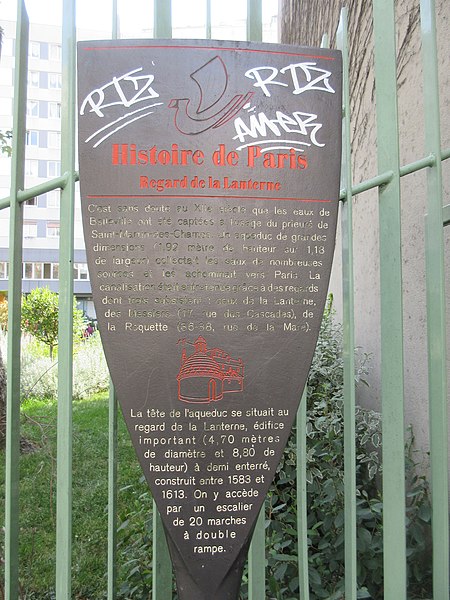 RTZ RTZ
AMER
Histoire de Paris
Regard de la Lanterne
C'est sans doute au XIIe siècle que les eaux de
Belleville ont été captées à l'usage du prieuré de
Saint-Martin-des-Champs. Un aqueduc de grandes
dimensions (1,92 mètre de hauteur sur 1,18
de largeur) collectait les eaux de nombreuses
sources et les acheminait vers Paris. La
canalisation était entretenue grâce à des regards
dont trois subsistent : ceux de la Lanterne,
des Messiers (17, rue des Cascades), de
la Roquette (36-38, rue de la Mare).
La tête de l'aqueduc se situait au
regard de la Lanterne, édifice
important (4,70 mètres
de diamètre et 8,80 de
hauteur) à demi enterré,
construit entre 1583 et
1613. On y accède
par un escalier
de 20 marches
à double
rampe.